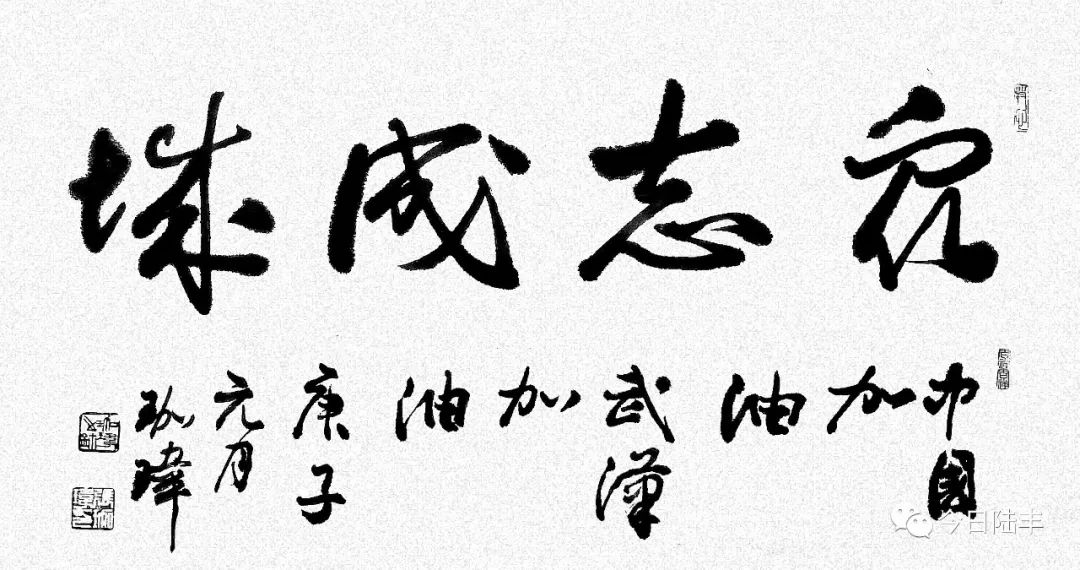 众志成城
中国
加
油
武汉
加
油
庚子
元月
珈瑋
今日陆丰